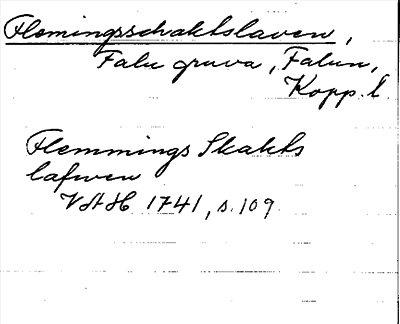 Flemingsschaktslaven,
Falu gruva, Falun,
Kopp. l
Flemmings Skakts
lafwen
VAH 1741, s. 109